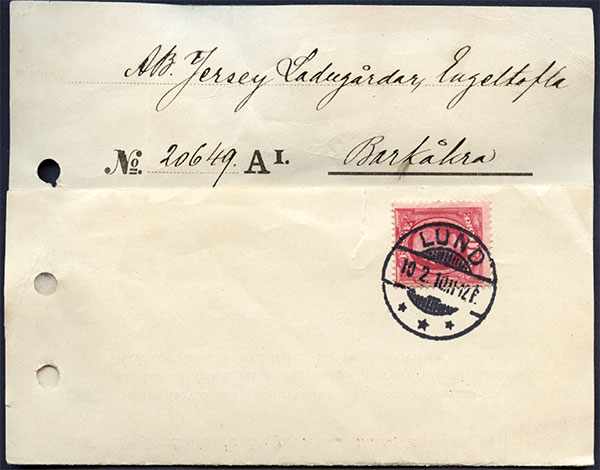 AB. Jersey Ladugårdar, Engeltofta
No. 20649. A I.
Barkåkra
LUND
10. 2. 10. 11-12 F.